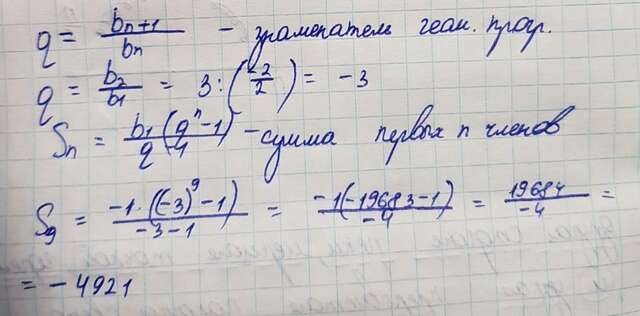 q = bn+1/bn - знаменатель геом. прогр.
q = b2/b1 = 3:(-2/2) = -3
Sn = b1(qⁿ-1)/q-1 - сумма первых n членов
S9 = -1·((-3)⁹-1)/-3-1 = -1(-19683-1)/-4 = 19684/-4 =
= -4921